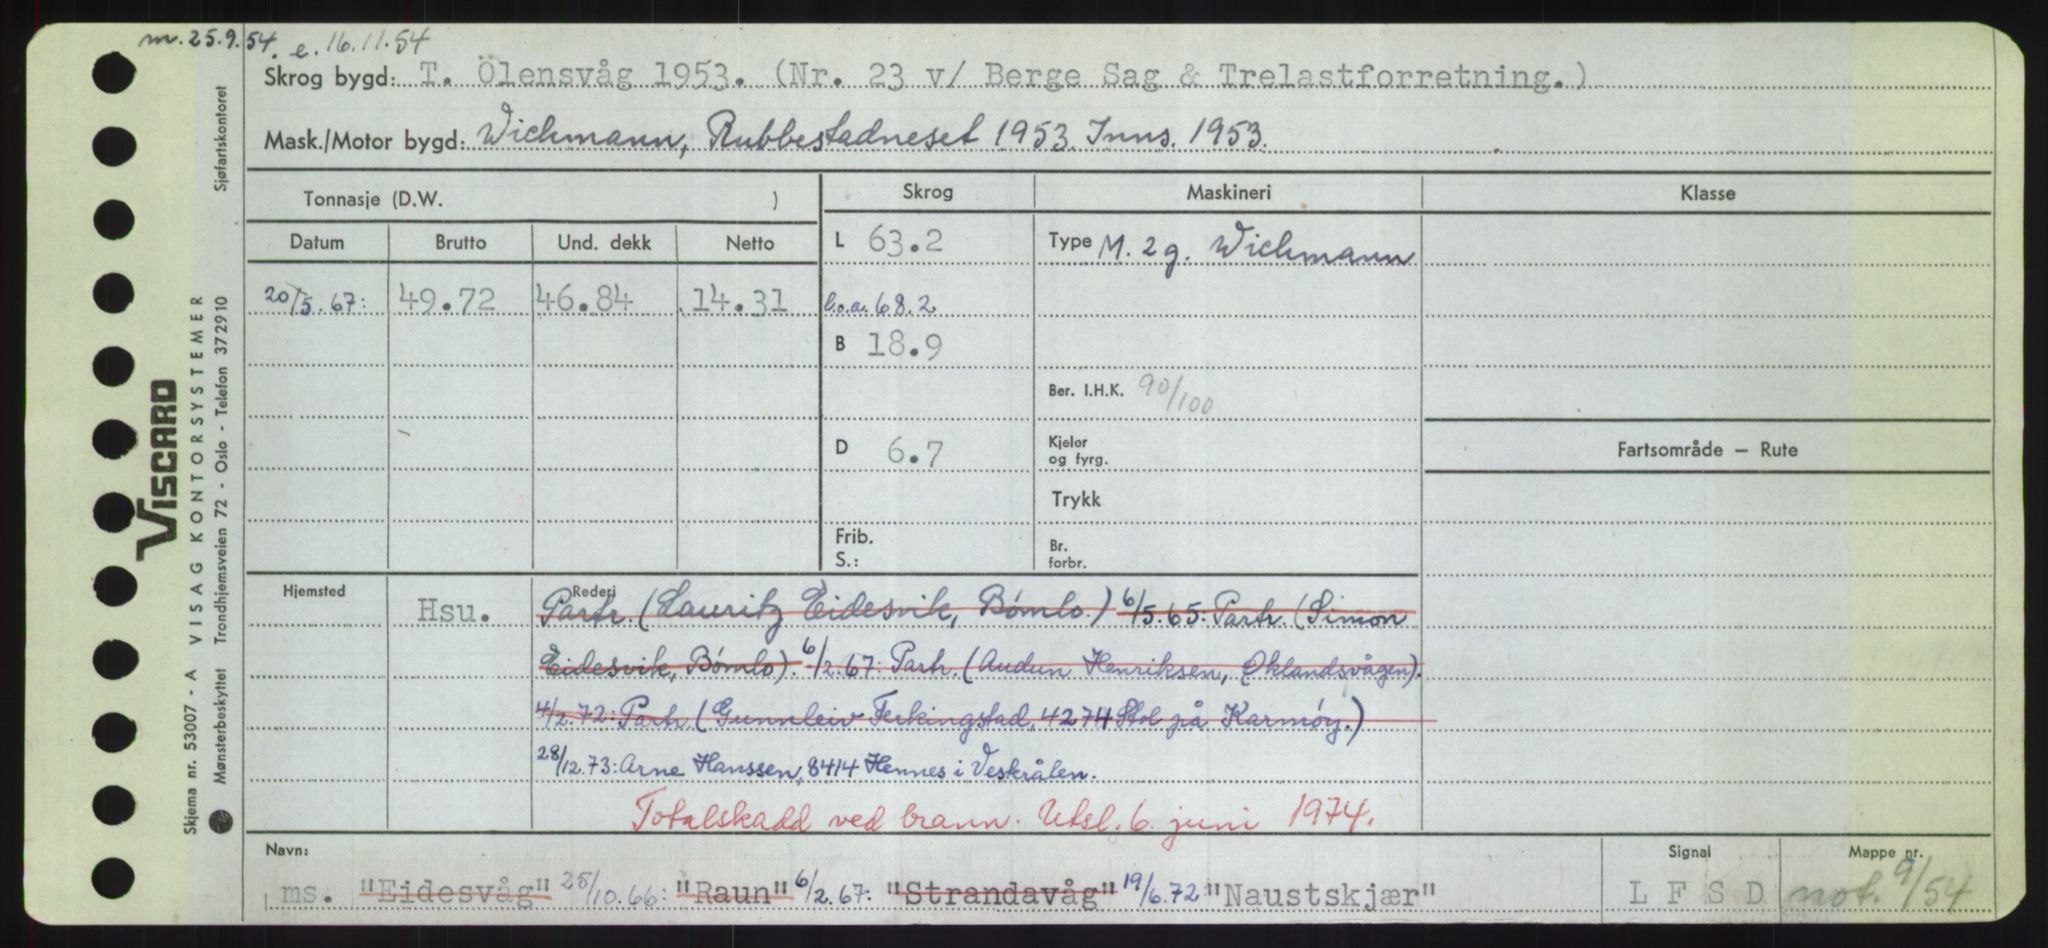 m. 25.9.54. e. 16.11.54
Skrog bygd: T. Ölensvåg 1953. (Nr. 23 v/ Berge Sag & Trelastforretning.)
Mask./Motor bygd: Wichmann, Rubbestadneset 1953. Inns. 1953.
Tonnasje (D.W. )
Skrog
Maskineri
Klasse
Datum Brutto Und. dekk Netto
L 63.2
Type M. 2 g. Wichmann
20/5.67: 49.72 46.84 14.31
l.o.a. 68.2
B 18.9
Ber. I.H.K. 90/100
D 6.7
Kjeler
og fyrg.
Fartsområde – Rute
Trykk
Frib.
S.:
Br.
forbr.
Hjemsted
Hsu.
Rederi
Partr. (Lauritz Eidesvik, Bømlo.) 6/5.65: Partr. (Simon
Eidesvik, Bømlo). 6/2.67: Partr. (Audun Henriksen, Øklandsvågen).
4/2.72: Partr. (Gunnleiv Ferkingstad, 4274 Stol på Karmøy.)
28/12.73: Arne Hanssen, 8414 Hennes i Vesterålen.
Totalskadd ved brann. Utsl. 6. juni 1974.
Navn:
ms. "Eidesvåg" 25/10.66: "Raun" 6/2.67: "Strandavåg" 19/6.72 "Naustskjær"
Signal
L F S D
Mappe nr.
not. 9/54
VISCARD
Skjema nr. 53007 - A VISAG KONTORSYSTEMER
Mønsterbeskyttet Trondhjemsveien 72 - Oslo - Telefon 372910 Sjøfartskontoret